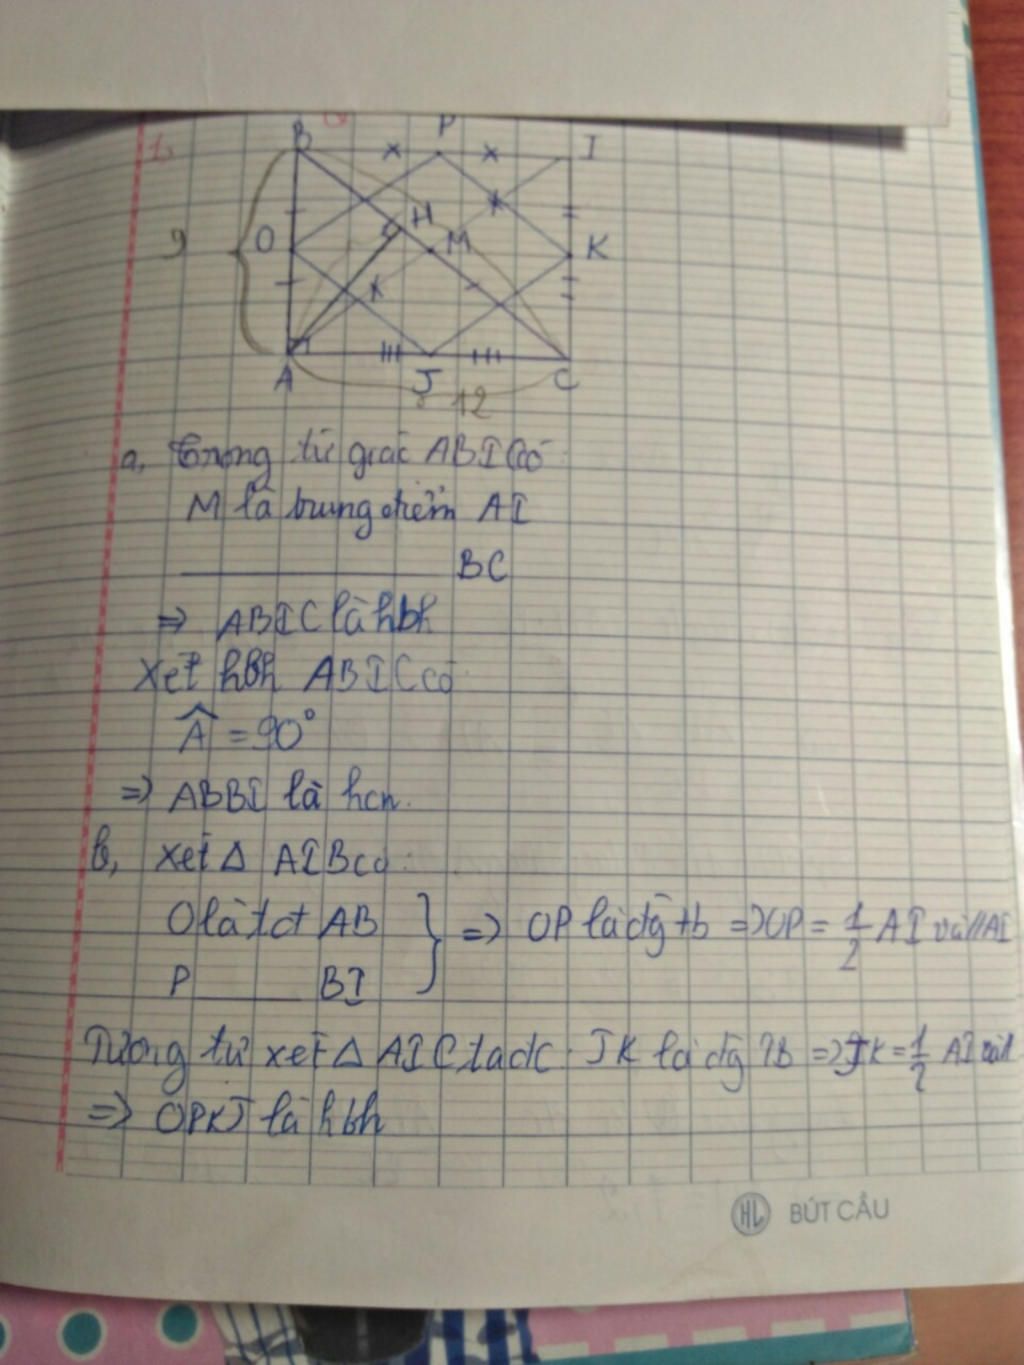 B P I
O H M K
9
A J C
12
a, Trong tứ giác ABIC có
M là trung điểm AI
BC
=> ABIC là hbh
Xét hbh ABIC có
Â = 90°
=> ABBI là hcn.
b, Xét Δ AIB có:
O là tđ AB } => OP là đg tb => OP = 1/2 AI và // AI
P BI
Tương tự xét Δ AIC ta đc JK là đg TB => JK = 1/2 AI
=> OPKJ là hbh
HL BÚT CẦU